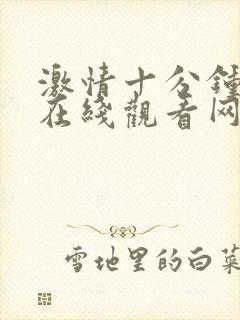 激情十分鍾
在綫觀看网
雪地里的白菜